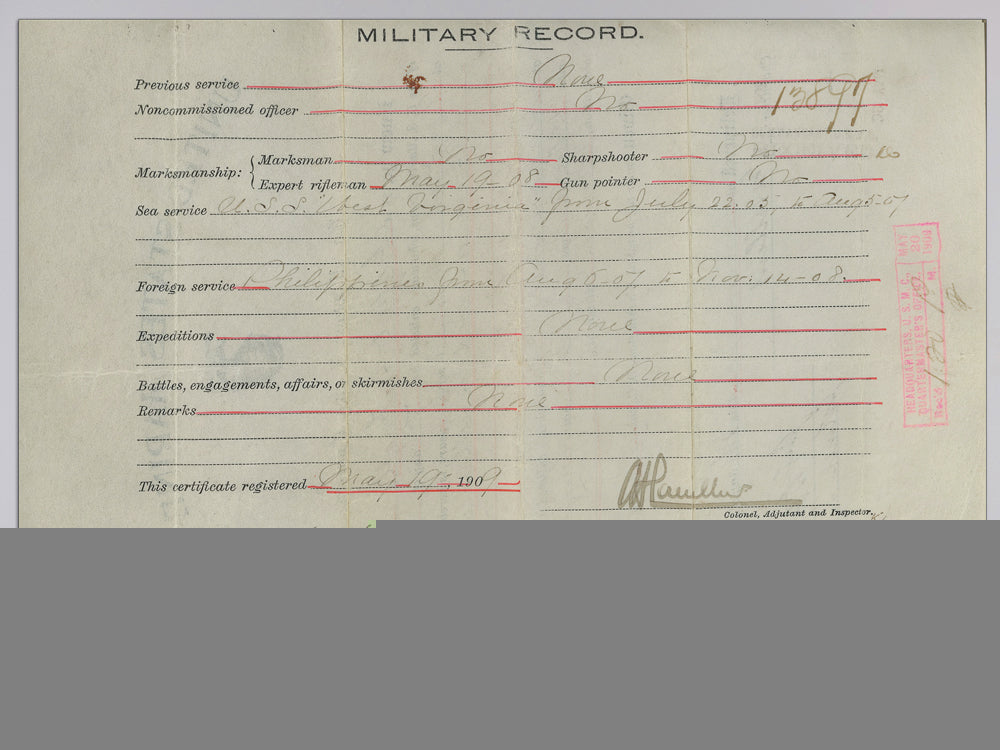 MILITARY RECORD.
Previous service None
Noncommissioned officer No
13897
Marksmanship: { Marksman No Sharpshooter No
Expert rifleman May 19-08 Gun pointer No
Sea service U.S.S. "West Virginia" from July 22.05, to Aug 5-07
Foreign service Philippines from Aug 6-07 to Nov. 14-08.
Expeditions None
Battles, engagements, affairs, or skirmishes None
Remarks None
This certificate registered May 19, 1909
Colonel, Adjutant and Inspector.
HEADQUARTERS, U.S.M.C., MAY 20 1909
QUARTERMASTER'S OFFICE M
Rec'd